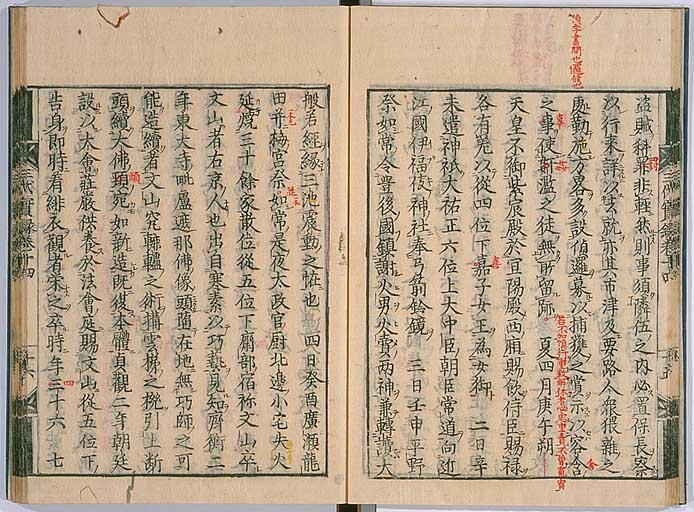 盗賊科罪悲輕然則事須隣伍之内必置保長察
以行來詳以去就亦其市津及要路人衆猥雜之
處勤施方畧多設偵邏募以捕獲之賞示以容含
之事使姧濫之徒無所留跡夏四月庚午朔
天皇不御紫宸殿於宜陽殿西廂賜飲侍臣賜禄
各有差以從四位下嘉子女王為女御　二日辛
未遣神祇大祐正六位上大中臣朝臣常道向近
江國伊福伎神社奉弓箭鈴鏡　三日壬申平野
祭如常令豊後國鎮謝火男火賣両神兼轉讀大
三代實録巻十四
般若經縁三池震動之恠也　四日癸酉廣瀬龍
田并梅宮祭如常是夜太政官厨北邊小宅失火
延焼三十餘家散位從五位下齋部宿祢文山卒
文山者右京人也出自寒素以巧藝見知齊衡二
年東大寺毗盧遮那佛像頭墮在地無巧師之可
能造續者文山究轆轤之術構雲梯之機引上断
頭續大佛頸宛如新造既復本體貞觀二年朝廷
設以大會莊嚴供養於法會庭賜文山從五位下
告身即時着緋衣觀者榮之卒時年三十六　七
三代實録巻十四